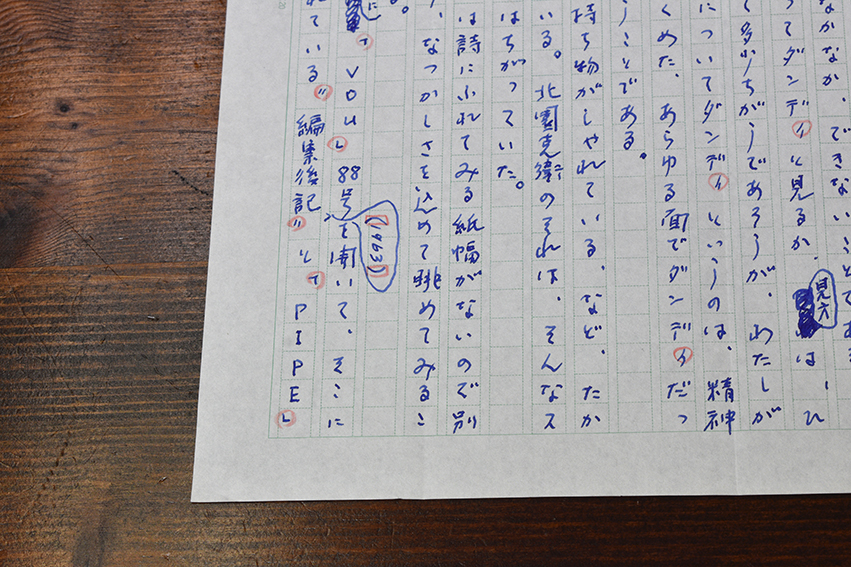 なかなか、できないことであ
ってダンディと見るか、見方は、ひ
て多少ちがうであろうが、わたしが
についてダンディというのは、精神
くめた、あらゆる面でダンディだっ
うことである。
持ち物がしゃれている、など、たか
いる。北園克衛のそれは、そんなス
はちがっていた。
は詩にふれてみる紙幅がないので別
、なつかしさを込めて眺めてみるこ
。
に「VOU」88号(1963)を開いて、そこに
れている〝編集後記〟と「PIPE」